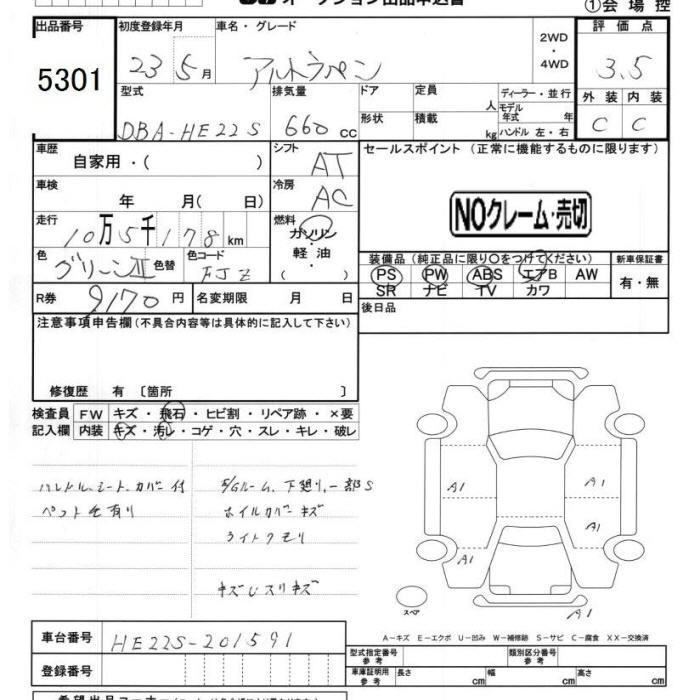 オークション出品申込書
①会場控
出品番号 初度登録年月 車名・グレード 2WD・4WD 評価点
5301 23 5月 アルトラパン 3.5
型式 排気量 ドア 定員 人 ディーラー・並行 外装 内装
DBA-HE22S 660cc 形状 積載 kg モデル年式 年 ハンドル 左・右 C C
車歴 自家用・( ) シフト AT セールスポイント (正常に機能するものに限ります)
車検 年 月( 日) 冷房 AC
NOクレーム・売切
走行 10万5千178km 燃料 ガソリン 軽油・( )
色 グリーンⅡ 色替 色コード FJZ
装備品 (純正品に限り○をつけてください) 新車保証書
PS PW ABS エアB AW 有・無
SR ナビ TV カワ
R券 9170円 名変期限 月 日 後日品
注意事項申告欄(不具合内容等は具体的に記入して下さい)
修復歴 有 〔箇所 〕
検査員 FW キズ・飛石・ヒビ割・リペア跡・×要
記入欄 内装 キズ・汚レ・コゲ・穴・スレ・キレ・破レ
ハンドル、シート、カバー付
ペット毛有り
E/Gルーム、下廻り、一部S
ホイルカバーキズ
ライトクモリ
キズ
A1 A1
A1
A1
スペア
A1
A-キズ E-エクボ U-凹み W-補修跡 S-サビ C-腐食 XX-交換済
車台番号 HE22S-201591
型式指定番号 参考 類別区分番号 参考
登録番号
車庫証明用 参考 長さ cm 幅 cm 高さ cm